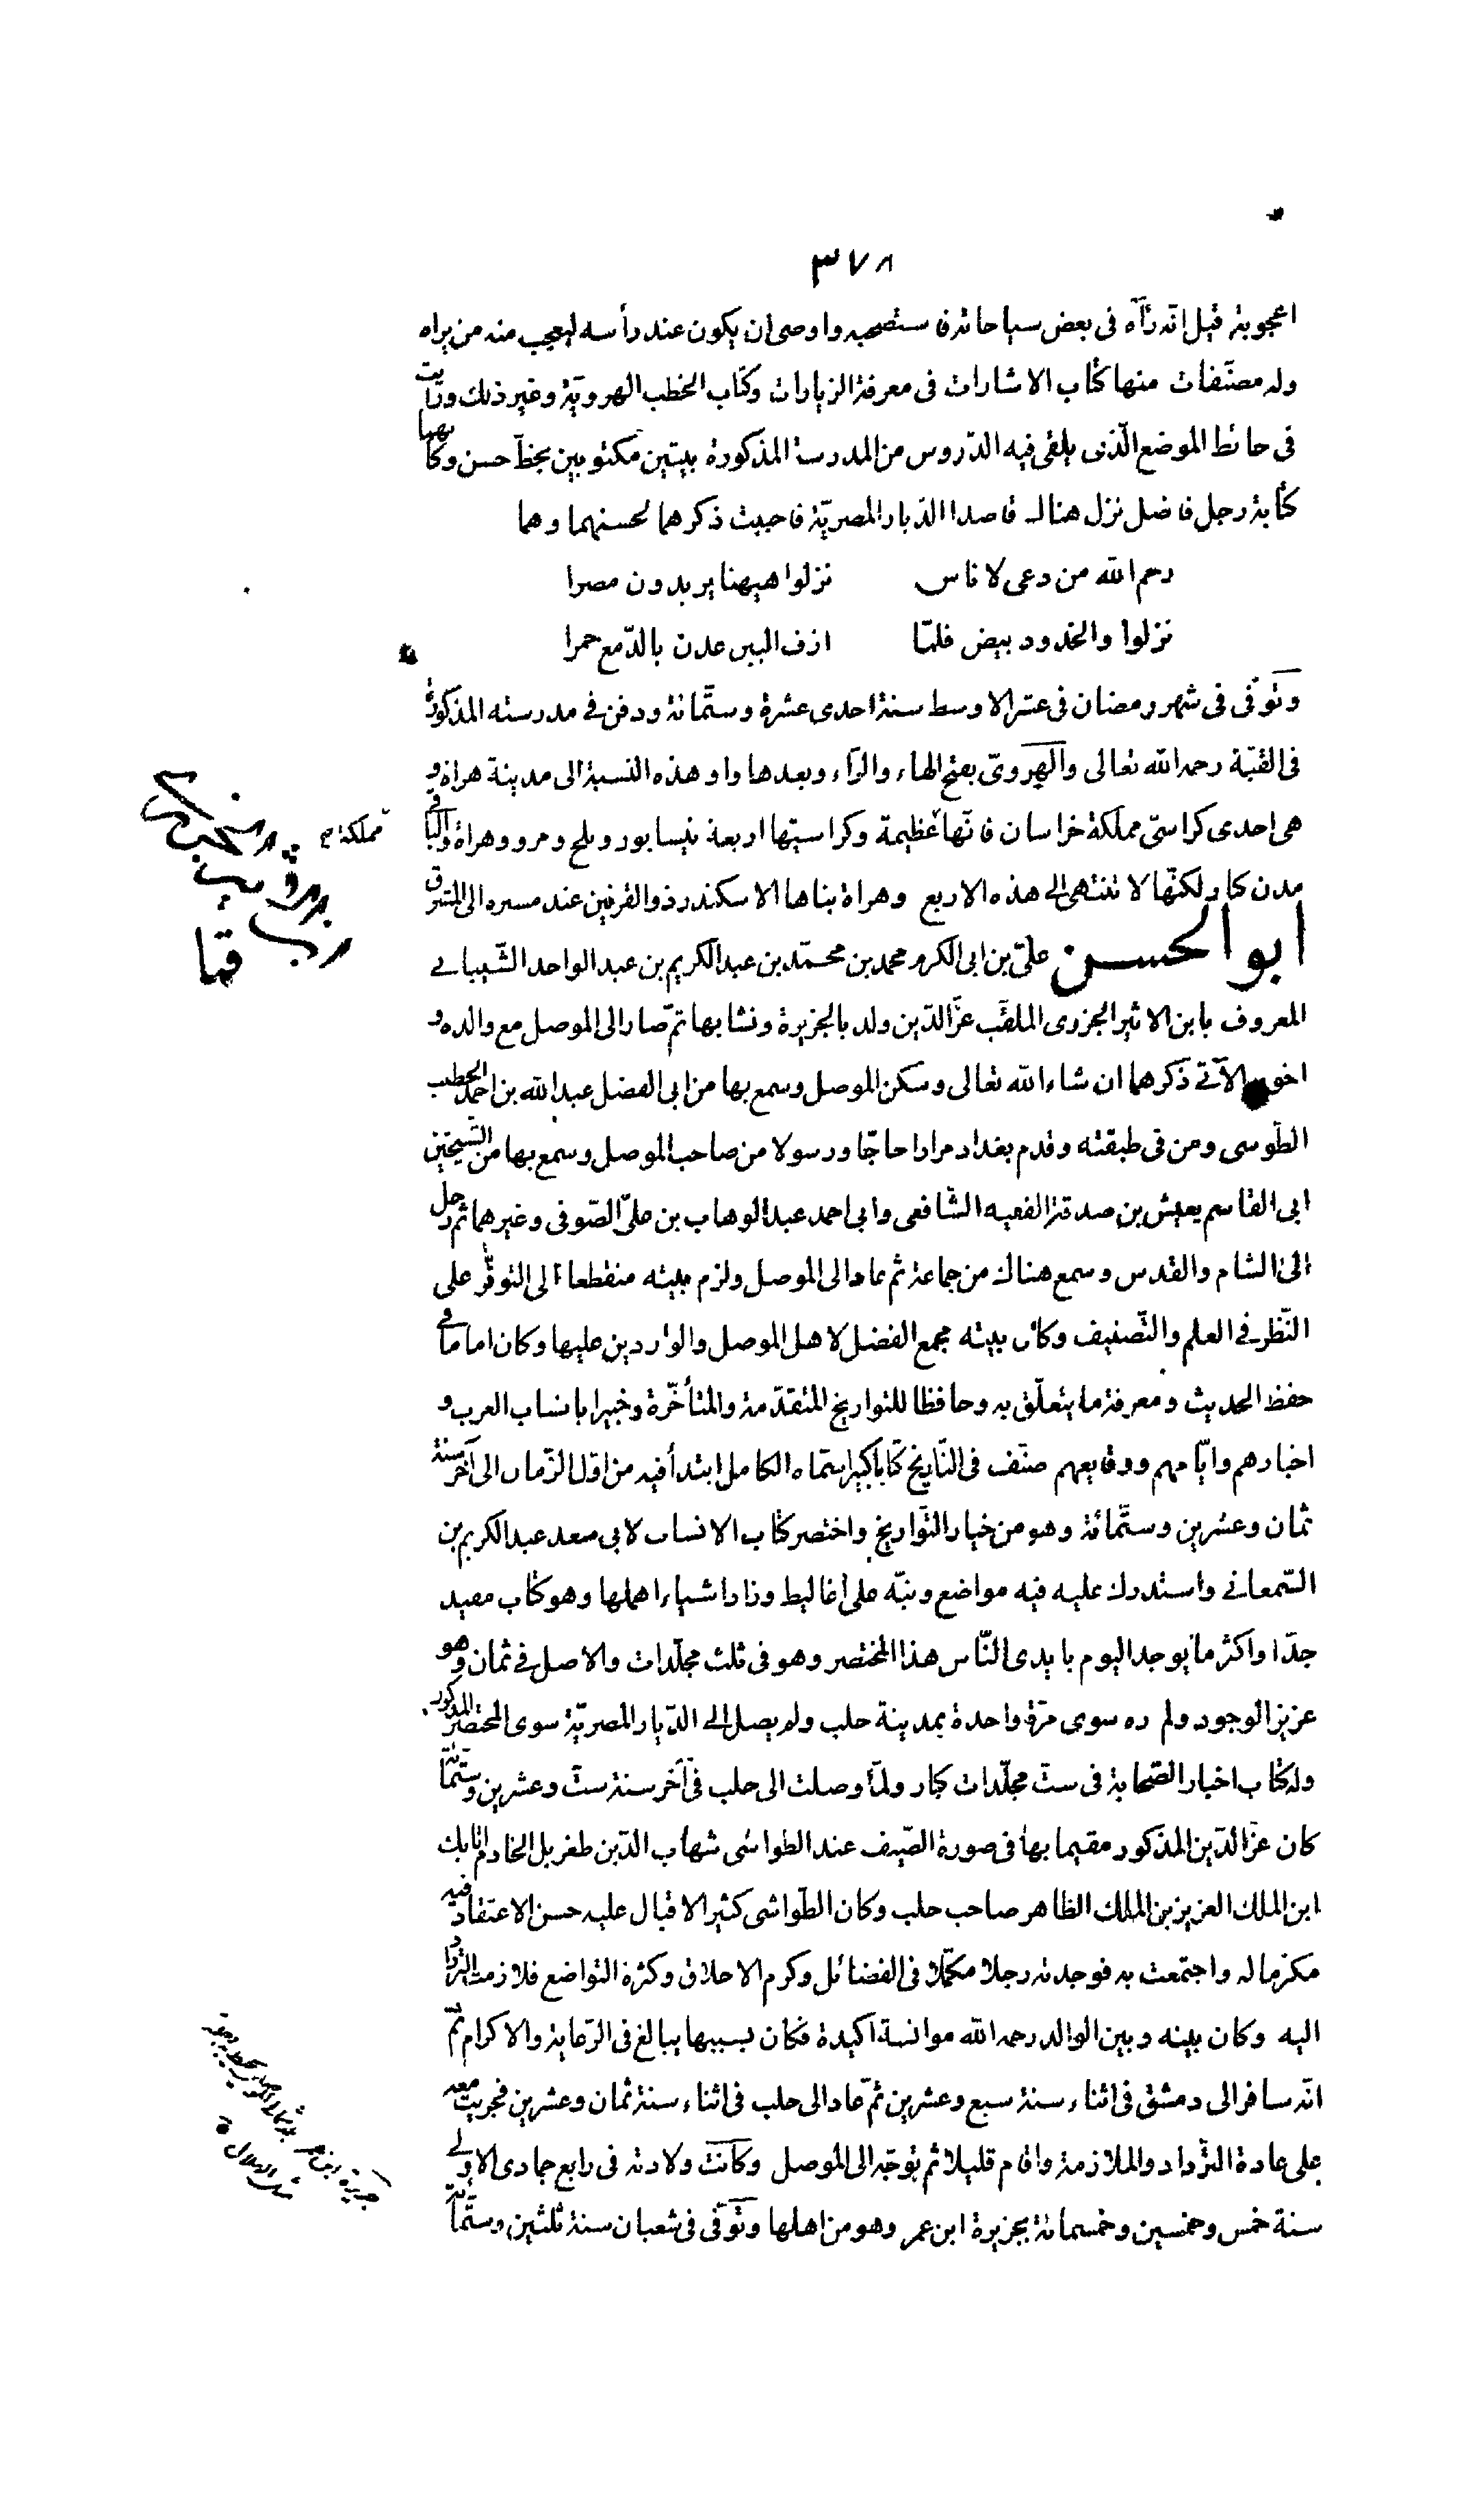 ٣٧٨
اعجوبة قيل انه رآه فى بعض سياحاته فاستصحبه واوصى ان يكون عند رأسه ليعجب منه من يراه
وله مصنّفات منها كتاب الاشارات فى معرفة الزيارات وكتاب الخطب الهرويّة وغير ذلك ورايت
فى حائط الموضع الّذى يلقى فيه الدّروس من المدرسة المذكورة بيتين مكتوبين بخطّ حسن وكانهما
كتابة رجل فاضل نزل هناك قاصدا الديار المصريّة فاحببت ذكرهما لحسنهما وهما
رحم الله من دعى لاناس نزلوا هيهنا يريدون مصرا
نزلوا والخدود بيض فلمّا ازف البين عدن بالدّمع حمرا
وتوفّى فى شهر رمضان فى عشر الاوسط سنة احدى عشرة وستّمائة ودفن فى مدرسته المذكورة
فى القبّة رحمه الله تعالى والهروىّ بفتح الهاء والرّاء وبعدها واو هذه النسبة الى مدينة هراة و
هى احدى كراسىّ مملكة خراسان فانّها عظيمة وكراسيّها اربعة نيسابور وبلخ ومرو وهراة والباقى
مدن كبار لكنّها لا تنتهى الى هذه الاربع وهراة بناها الاسكندر ذو القرنين عند مسيره الى المشرق
ابو الحسن علىّ بن ابى الكرم محمد بن محمّد بن عبد الكريم بن عبد الواحد الشّيبانى
المعروف بابن الاثير الجزرى الملقّب عزّ الدّين ولد بالجزيرة ونشا بها ثمّ صار الى الموصل مع والده و
اخويه الآتى ذكرهما ان شاء الله تعالى وسكن الموصل وسمع بها من ابى الفضل عبد الله بن احمد الخطيب
الطّوسى ومن فى طبقته وقدم بغداد مرارا حاجّا ورسولا من صاحب الموصل وسمع بها من الشّيخين
ابى القاسم يعيش بن صدقة الفقيه الشّافعى وابى احمد عبد الوهاب بن علىّ الصّوفى وغيرهما ثم رحل
الى الشام والقدس وسمع هناك من جماعة ثم عاد الى الموصل ولزم بيته منقطعا الى التوفّر على
النّظر فى العلم والتّصنيف وكان بيته مجمع الفضل لاهل الموصل والواردين عليها وكان اماما فى
حفظ الحديث ومعرفة ما يتعلّق به وحافظا للتواريخ المتقدّمة والمتأخّرة وخبيرا بانساب العرب و
اخبارهم وايّامهم ووقايعهم صنّف فى التّاريخ كتابا كبيرا سمّاه الكامل ابتدأ فيه من اوّل الزّمان الى آخر سنة
ثمان وعشرين وستّمائة وهو من خيار التّواريخ واختصر كتاب الانساب لابى سعد عبد الكريم بن
السّمعانى واستدرك عليه فيه مواضع ونبّه على اغاليط وزاد اشياء اهملها وهو كتاب مفيد
جدّا واكثر ما يوجد اليوم بايدى النّاس هذا المختصر وهو فى ثلث مجلّدات والاصل فى ثمان وهو
عزيز الوجود ولم ره سوى مرّة واحدة بمدينة حلب ولم يصل الى الدّيار المصريّة سوى المختصر المذكور
وله كتاب اخبار الصّحابة فى ستّ مجلّدات كبار ولمّا وصلت الى حلب فى آخر سنة ستّ وعشرين وستّمائة
كان عزّ الدّين المذكور مقيما بها فى صورة الضّيف عند الطواشى شهاب الدّين طغريل الخادم اتابك
ابن الملك العزيز بن الملك الظاهر صاحب حلب وكان الطّواشى كثير الاقبال عليه حسن الاعتقاد فيه
مكرّما له واجتمعت به فوجدته رجلا مكمّلا فى الفضائل وكرم الاخلاق وكثرة التواضع فلازمت التّرداد
اليه وكان بينه وبين الوالد رحمه الله موانسة اكيدة فكان بسببها يبالغ فى الرّعاية والاكرام ثمّ
انّه سافر الى دمشق فى اثناء سنة سبع وعشرين ثمّ عاد الى حلب فى اثناء سنة ثمان وعشرين فجريت معه
على عادة التّرداد والملازمة واقام قليلا ثم توجّه الى الموصل وكانت ولادته فى رابع جمادى الاولى
سنة خمس وخمسين وخمسمائة بجزيرة ابن عمر وهو من اهلها وتوفّى فى شعبان سنة ثلثين وستّمائة
مملكة